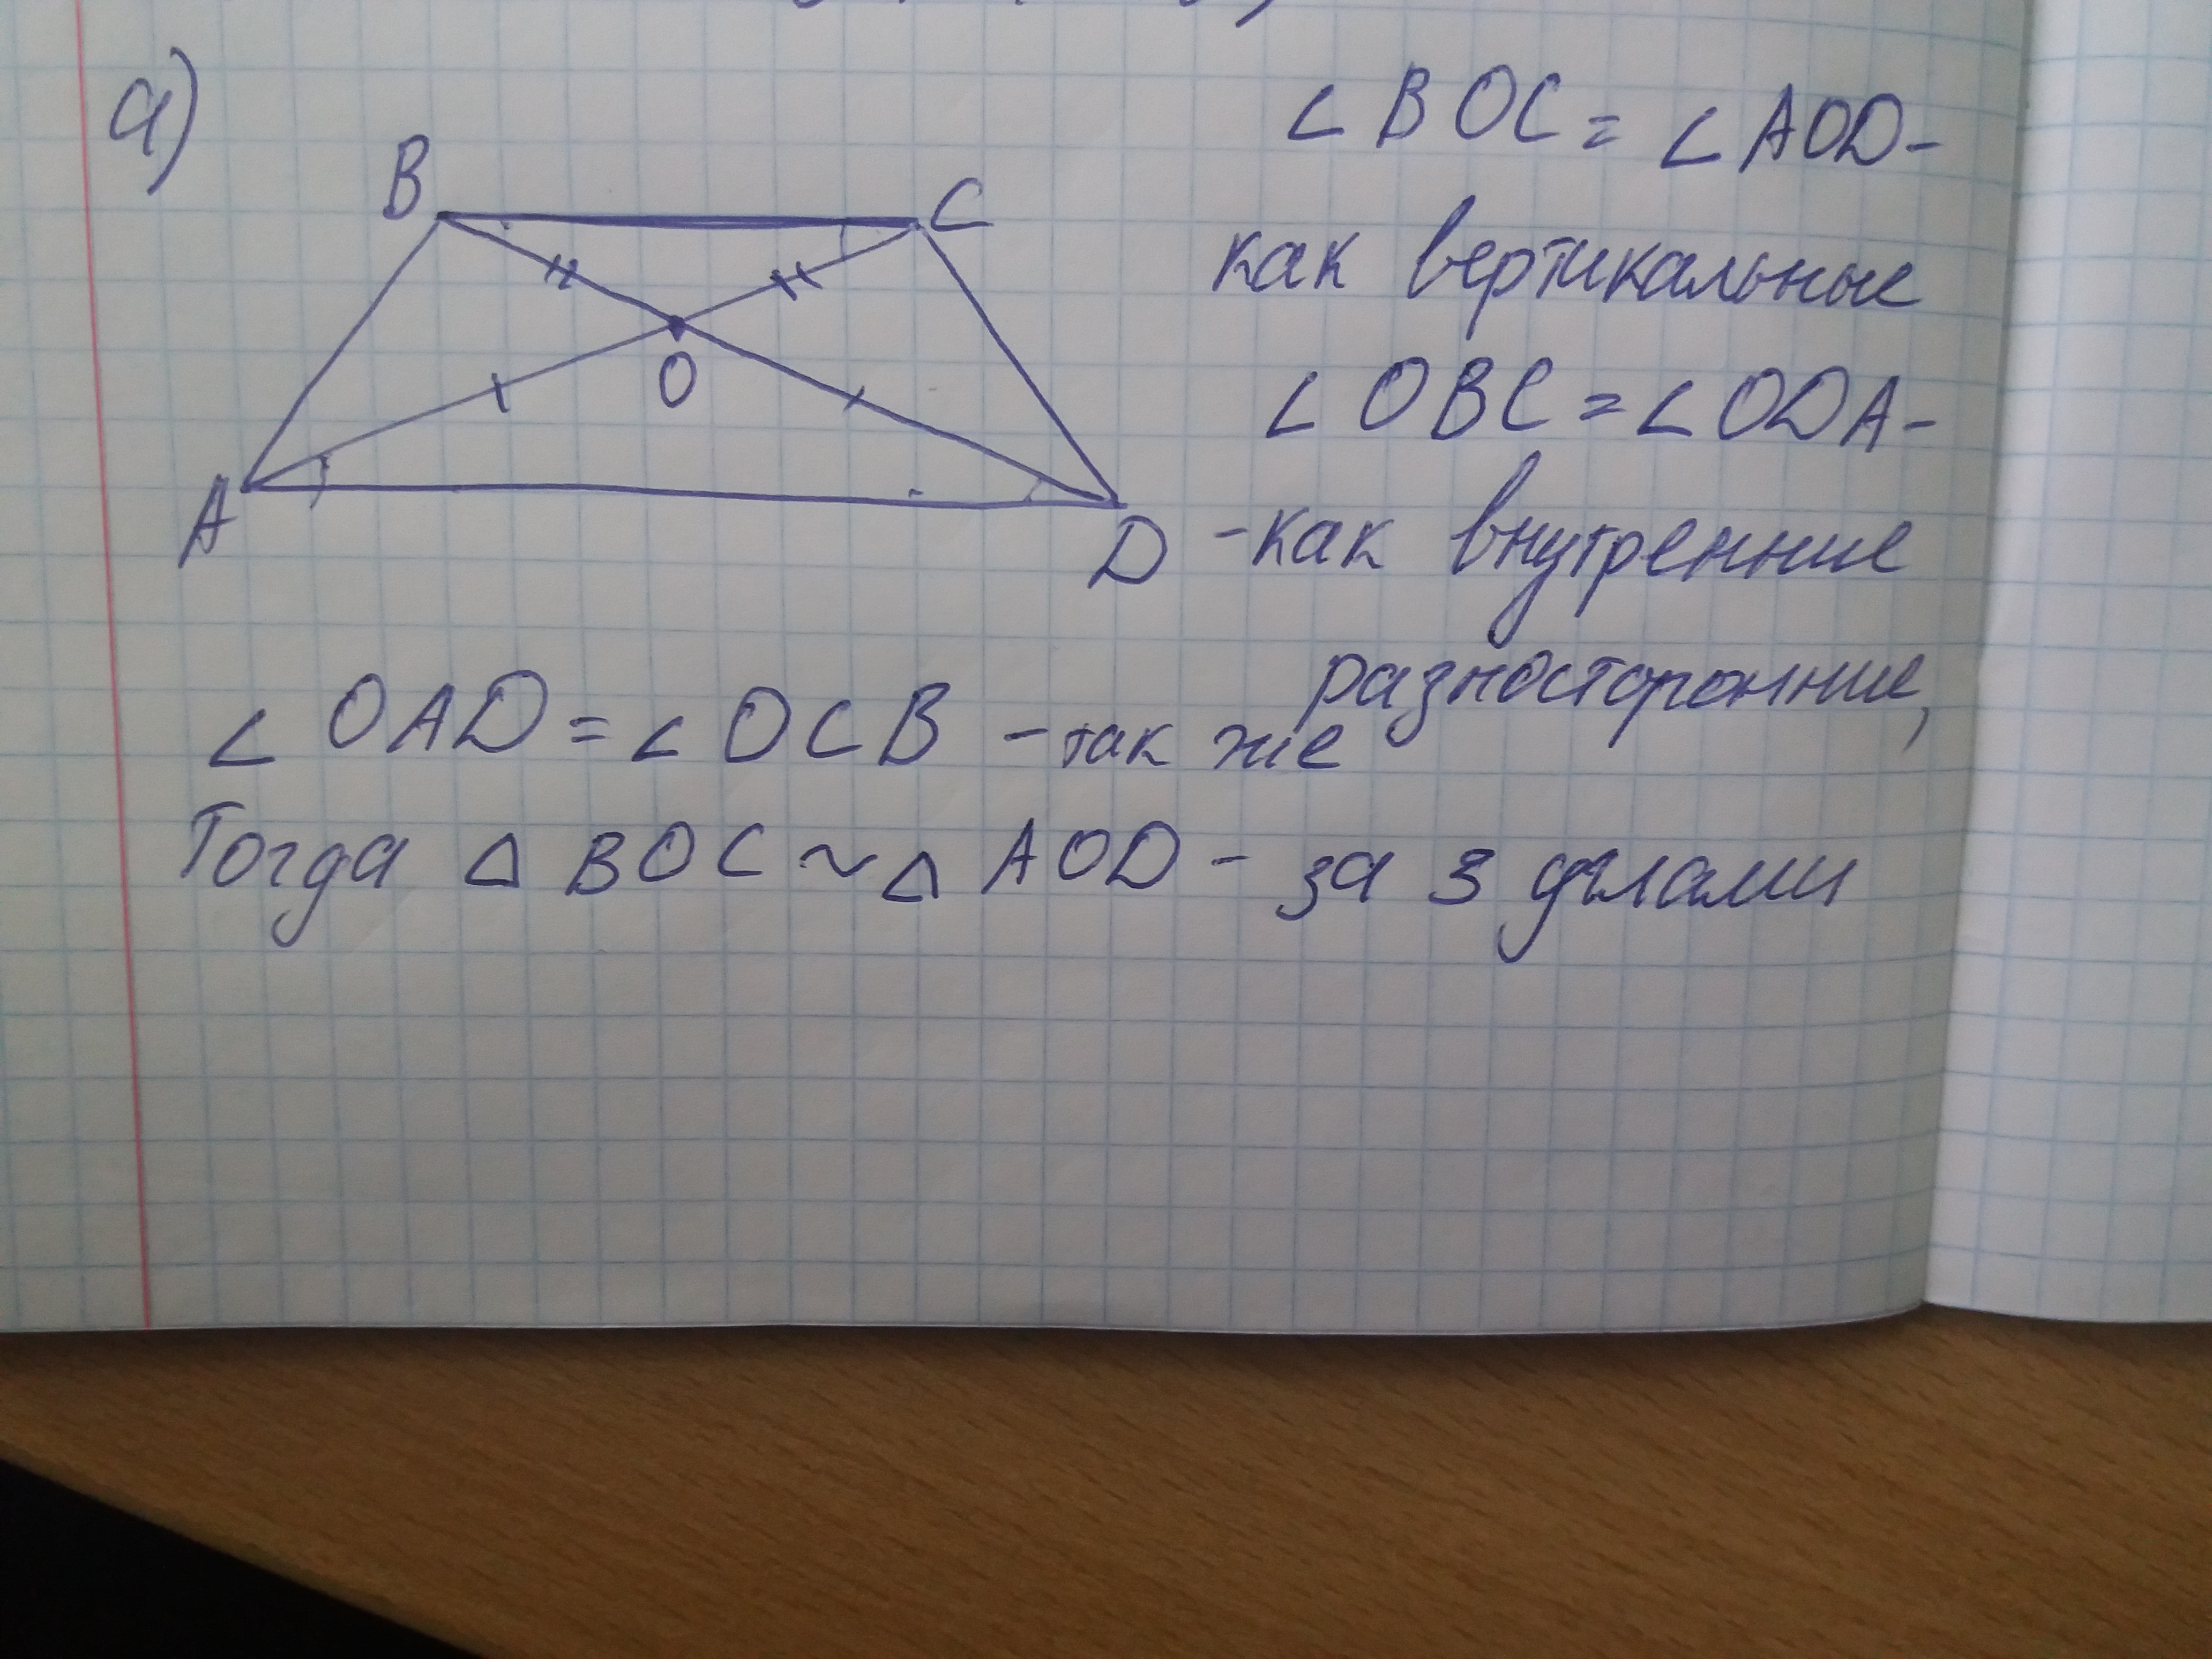 а)
B
C
O
A
D
∠ BOC = ∠ AOD -
как вертикальные
∠ OBC = ∠ ODA -
- как внутренние
разносторонние,
∠ OAD = ∠ OCB - так же
Тогда △ BOC ~ △ AOD - за 3 углами